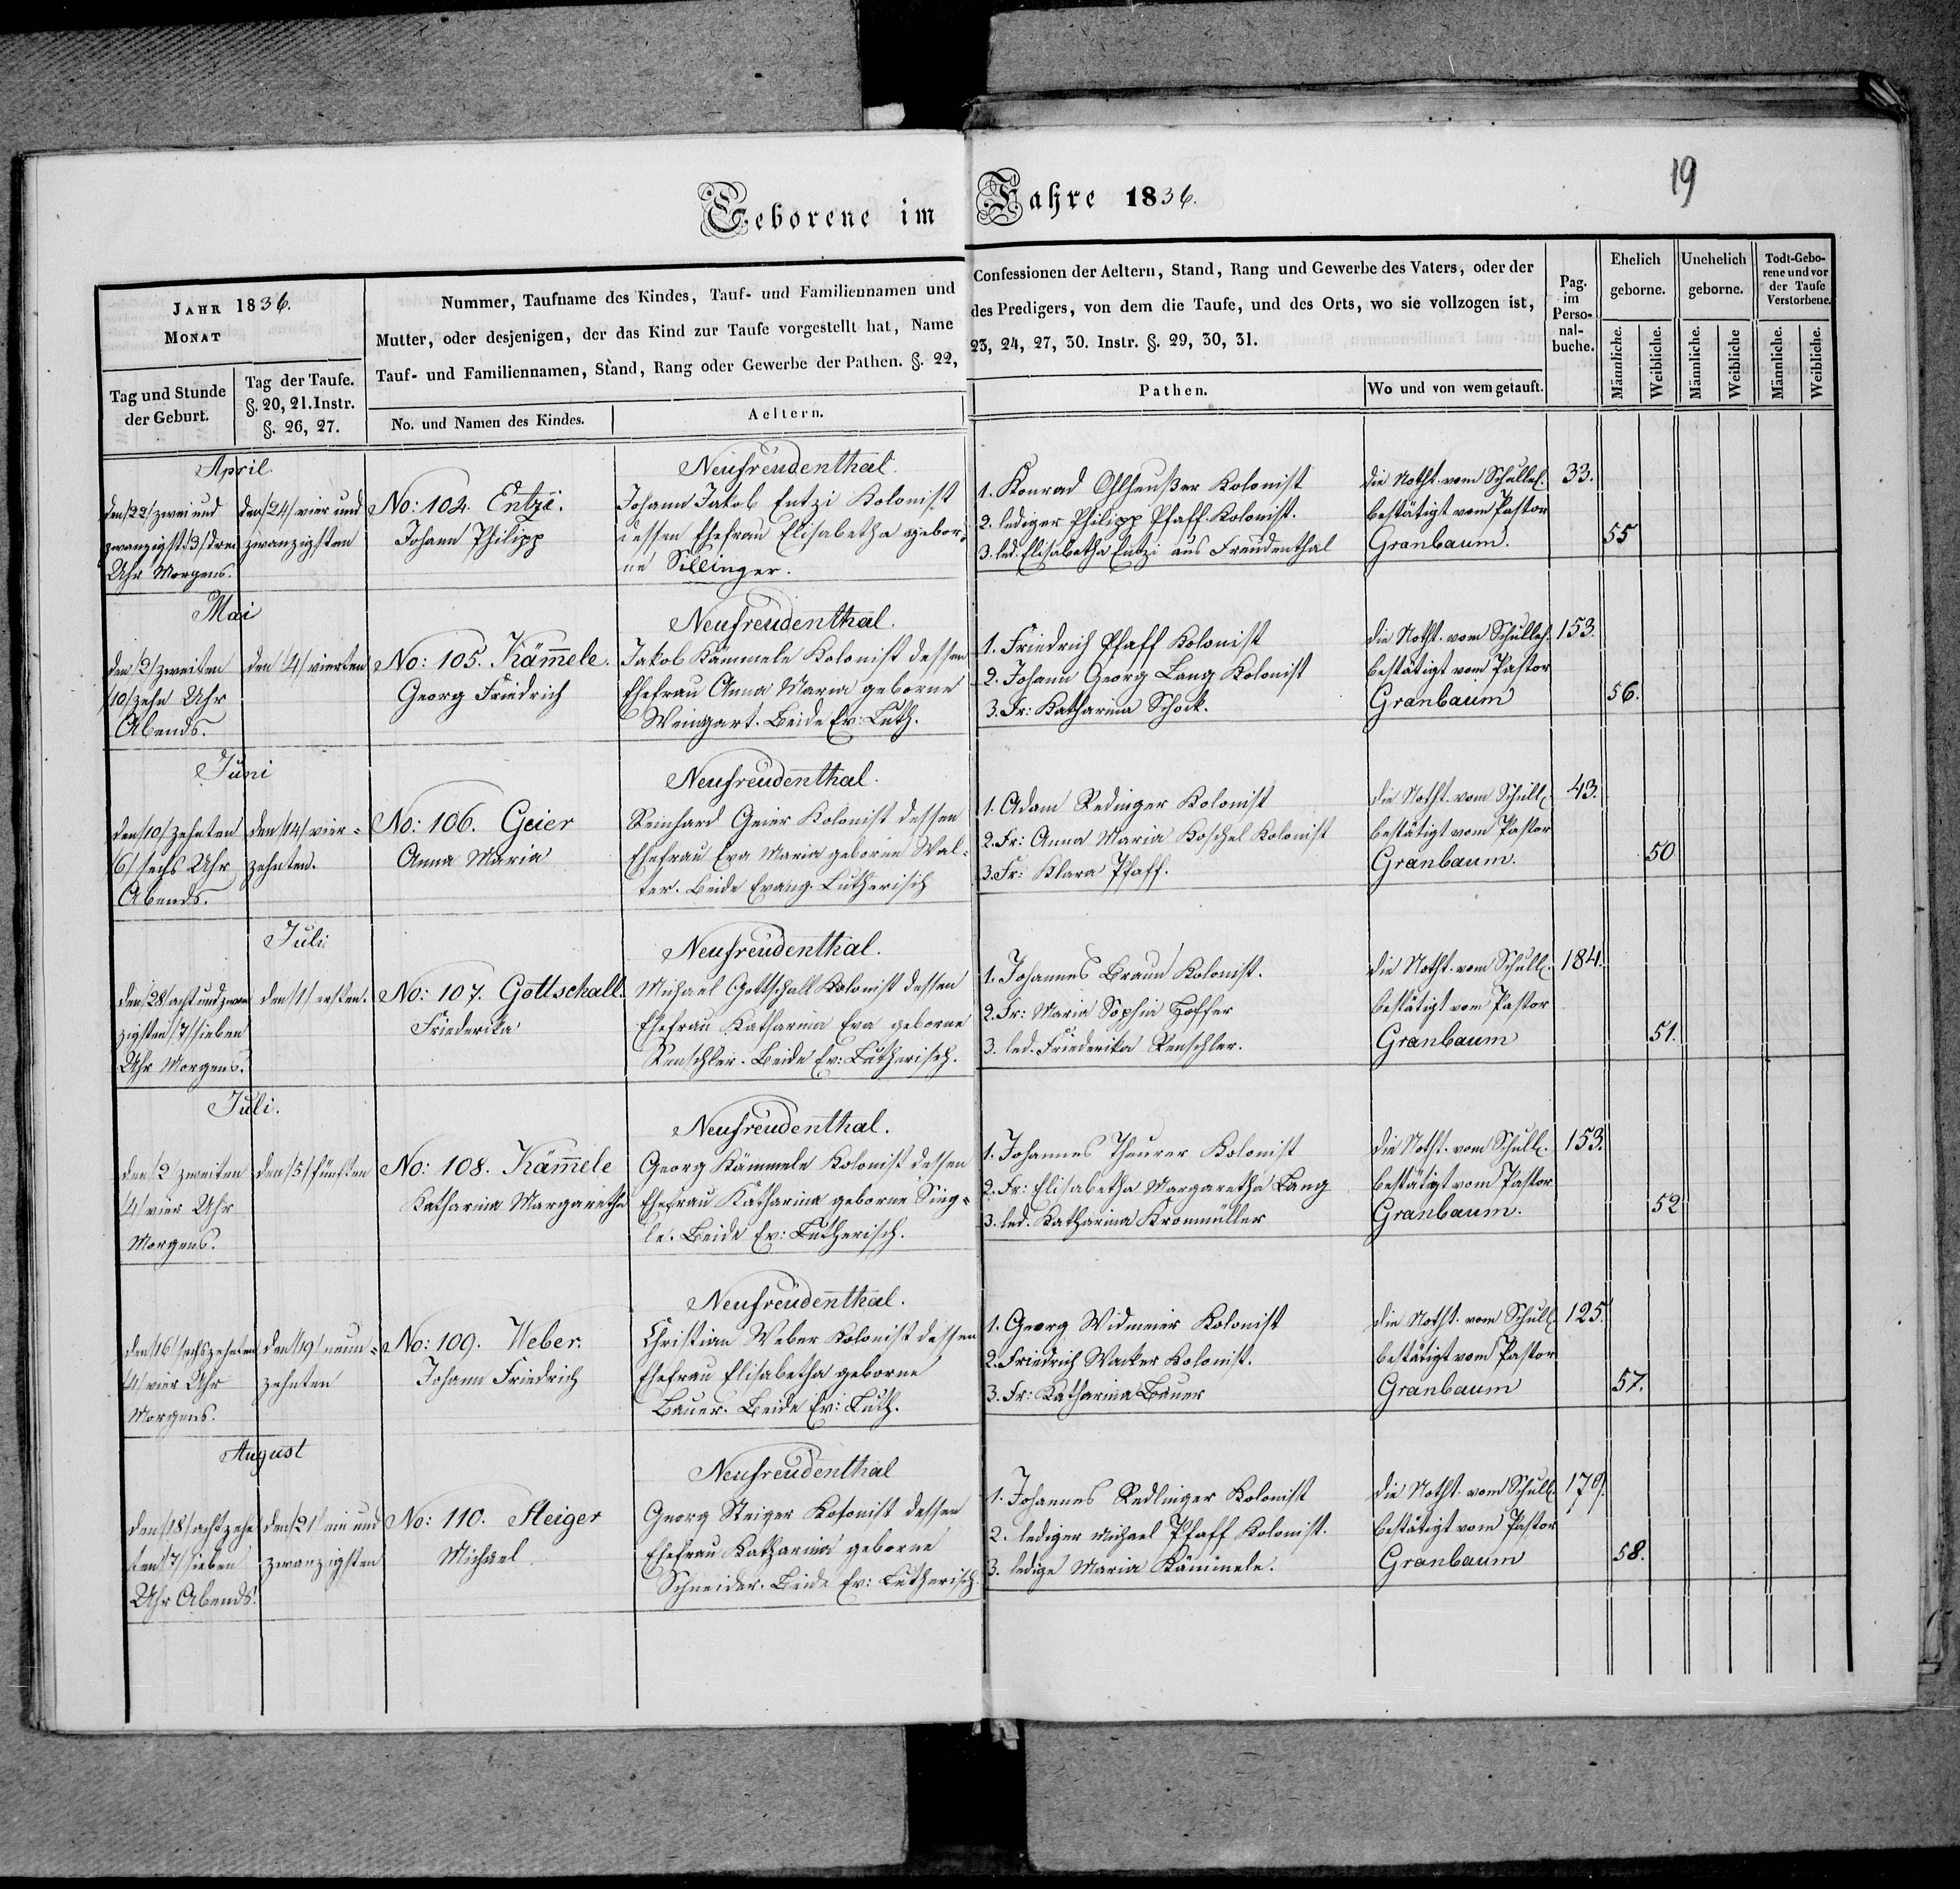 19
Geborene im Jahre 1836.
JAHR 1836.
MONAT
Tag und Stunde
der Geburt.
Tag der Taufe.
§. 20, 21. Instr.
§. 26, 27.
Nummer, Taufname des Kindes, Tauf- und Familiennamen und
Mutter, oder desjenigen, der das Kind zur Taufe vorgestellt hat, Name
Tauf- und Familiennamen, Stand, Rang oder Gewerbe der Pathen. §. 22,
No. und Namen des Kindes.
Aeltern.
Confessionen der Aeltern, Stand, Rang und Gewerbe des Vaters, oder der
des Predigers, von dem die Taufe, und des Orts, wo sie vollzogen ist,
23, 24, 27, 30. Instr. §. 29, 30, 31.
Pathen.
Wo und von wem getauft.
Pag.
im
Perso-
nal-
buche.
Ehelich
geborne.
Unehelich
geborne.
Todt-Gebo-
rene und vor
der Taufe
Verstorbene.
Männliche.
Weibliche.
Männliche.
Weibliche
Männliche.
Weibliche.
April.
den /22/ zwei und
zwanzigst. /3/ drei
Uhr Morgens.
den /24/ vier und
zwanzigsten
No: 104. Entzi.
Johann Philipp
Neufreudenthal.
Johann Jakob Entzi Kolonist
dessen Ehefrau Elisabetha gebor-
ne Sillinger.
1. Konrad Ohlheußer Kolonist
2. lediger Philipp Pfaff Kolonist.
3. led. Elisabetha Entzi aus Freudenthal
die Notht. vom Schulleh.
bestätigt vom Pastor
Granbaum.
33.
55
Mai
den /2/ zweiten
/10/ zehn Uhr
Abends.
den /4/ vierten
No: 105. Käm̄ele.
Georg Friedrich
Neufreudenthal.
Jakob Kämmele Kolonist dessen
Ehefrau Anna Maria geborne
Weingart. Beide Ev: Luth.
1. Friedrich Pfaff Kolonist
2. Johann Georg Lang Kolonist
3. Fr: Katharina Schock.
die Notht. vom Schulleh.
bestätigt vom Pastor
Granbaum
153.
56.
Juni
den /10/ zehnten
/6/ sechs Uhr
Abends.
den /14/ vier-
zehnten.
No: 106. Geier
Anna Maria
Neufreudenthal.
Reinhard Geier Kolonist dessen
Ehefrau Eva Maria geborne Wal-
ter. Beide Evang. Lutherisch
1. Adam Redinger Kolonist
2. Fr: Anna Maria Koschel Kolonist
3. Fr: Klara Pfaff.
die Notht. vom Schull.
bestätigt vom Pastor
Granbaum.
43.
50
Juli
den /28/ acht und zwan
zigsten /7/ sieben
Uhr Morgens.
den /1/ ersten.
No: 107. Gottschall.
Friederika
Neufreudenthal.
Michael Gottschall Kolonist dessen
Ehefrau Katharina Eva geborne
Renschler. Beide Ev: Lutherisch.
1. Johannes Braun Kolonist.
2. Fr: Maria Sophia Hoffer
3. led. Friederika Renschler.
die Notht. vom Schull.
bestätigt vom Pastor
Granbaum
184.
51.
Juli.
den /2/ zweiten
/4/ vier Uhr
Morgens.
den /5/ fünften
No: 108. Käm̄ele
Katharina Margaretha
Neufreudenthal.
Georg Kämmele Kolonist dessen
Ehefrau Katharina geborne Sing-
le. Beide Ev: Lutherisch.
1. Johannes Theurer Kolonist
2. Fr: Elisabetha Margaretha Lang
3. led. Katharina Kronmüller
die Notht. vom Schull.
bestätigt vom Pastor
Granbaum.
153.
52
den /16/ sechszehnten
/4/ vier Uhr
Morgens.
den /19/ neun-
zehnten
No: 109. Weber.
Johann Friedrich
Neufreudenthal.
Christian Weber Kolonist dessen
Ehefrau Elisabetha geborne
Bauer. Beide Ev: Luth.
1. Georg Widmeier Kolonist
2. Friedrich Walker Kolonist.
3. Fr: Katharina Bauer
die Notht. vom Schull.
bestätigt vom Pastor
Granbaum
125.
57.
August
den /18/ achtzehn
ten /7/ sieben
Uhr Abends.
den /21/ ein und
zwanzigsten
No: 110. Steiger
Michael
Neufreudenthal
Georg Steiger Kolonist dessen
Ehefrau Katharina geborne
Schneider. Beide Ev: Lutherisch.
1. Johannes Redlinger Kolonist
2. lediger Michael Pfaff Kolonist.
3. ledige Maria Kämmele.
die Notht. vom Schull.
bestätigt vom Pastor
Granbaum
179.
58.